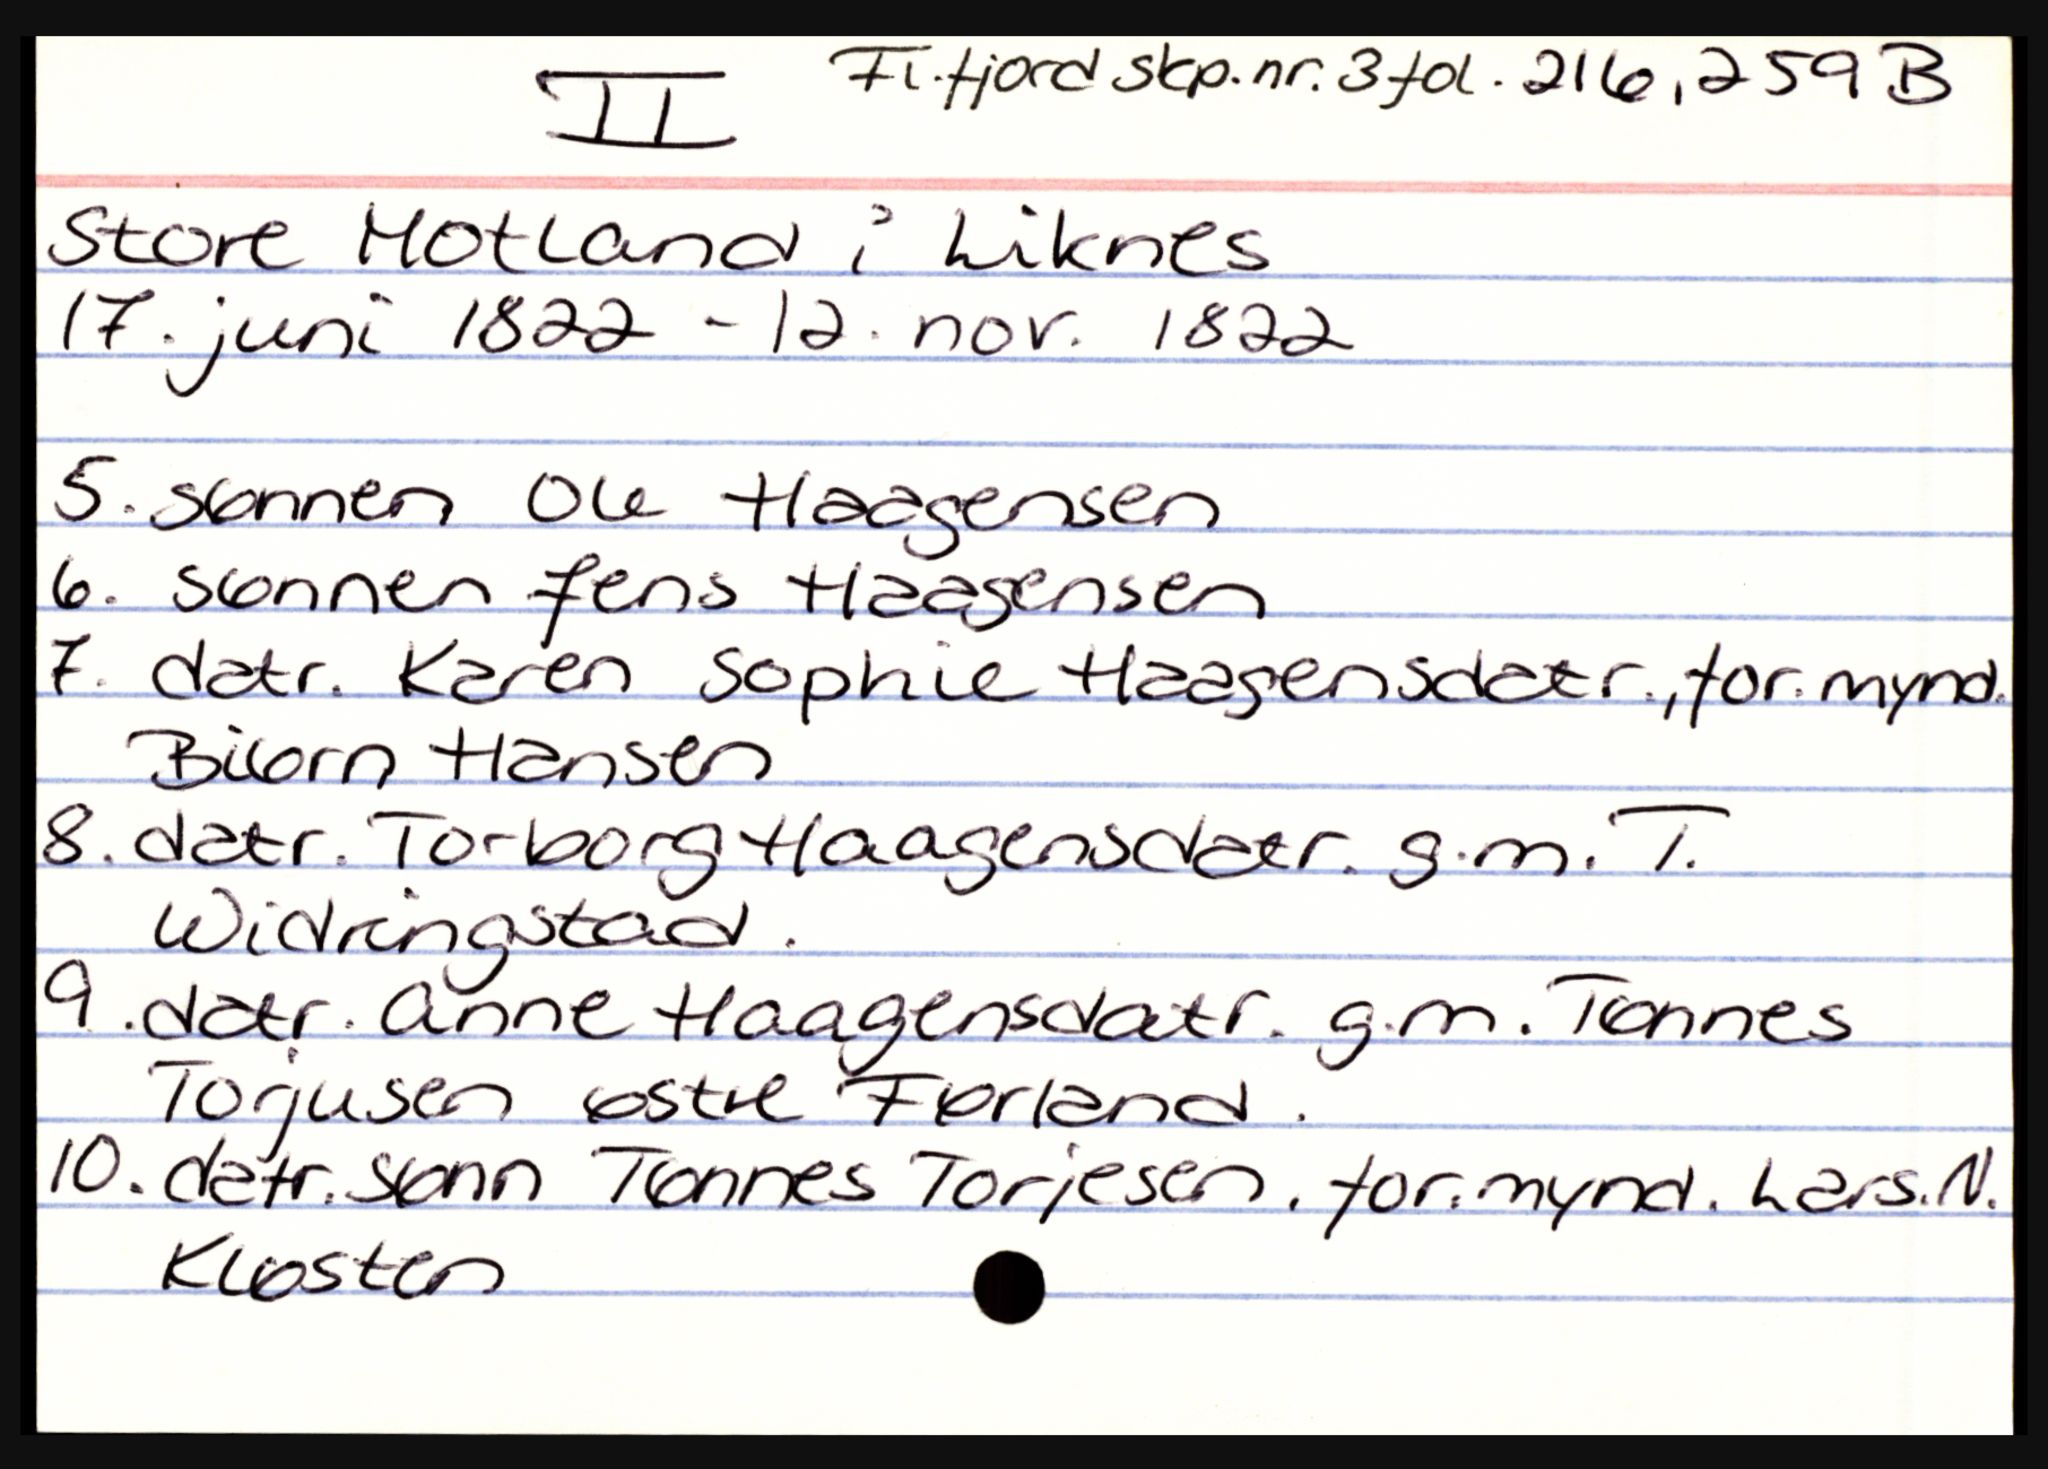 II Fl.fjord skp.nr. 3 fol. 216, 259 B
Store Motland i Liknes
17. juni 1822 - 12. nov. 1822
5. sønnen Ole Haagensen
6. sønnen Jens Haagensen
7. datr. Karen Sophie Haagensdatr., for.mynd.
Biørn Hansen
8. datr. Torborg Haagensdatr. g.m. T.
Widringstad.
9. datr. Anne Haagensdatr. g.m. Tønnes
Torjusen østre Førland.
10. datr. sønn Tønnes Torjesen, for.mynd. Lars. N.
Kløsten